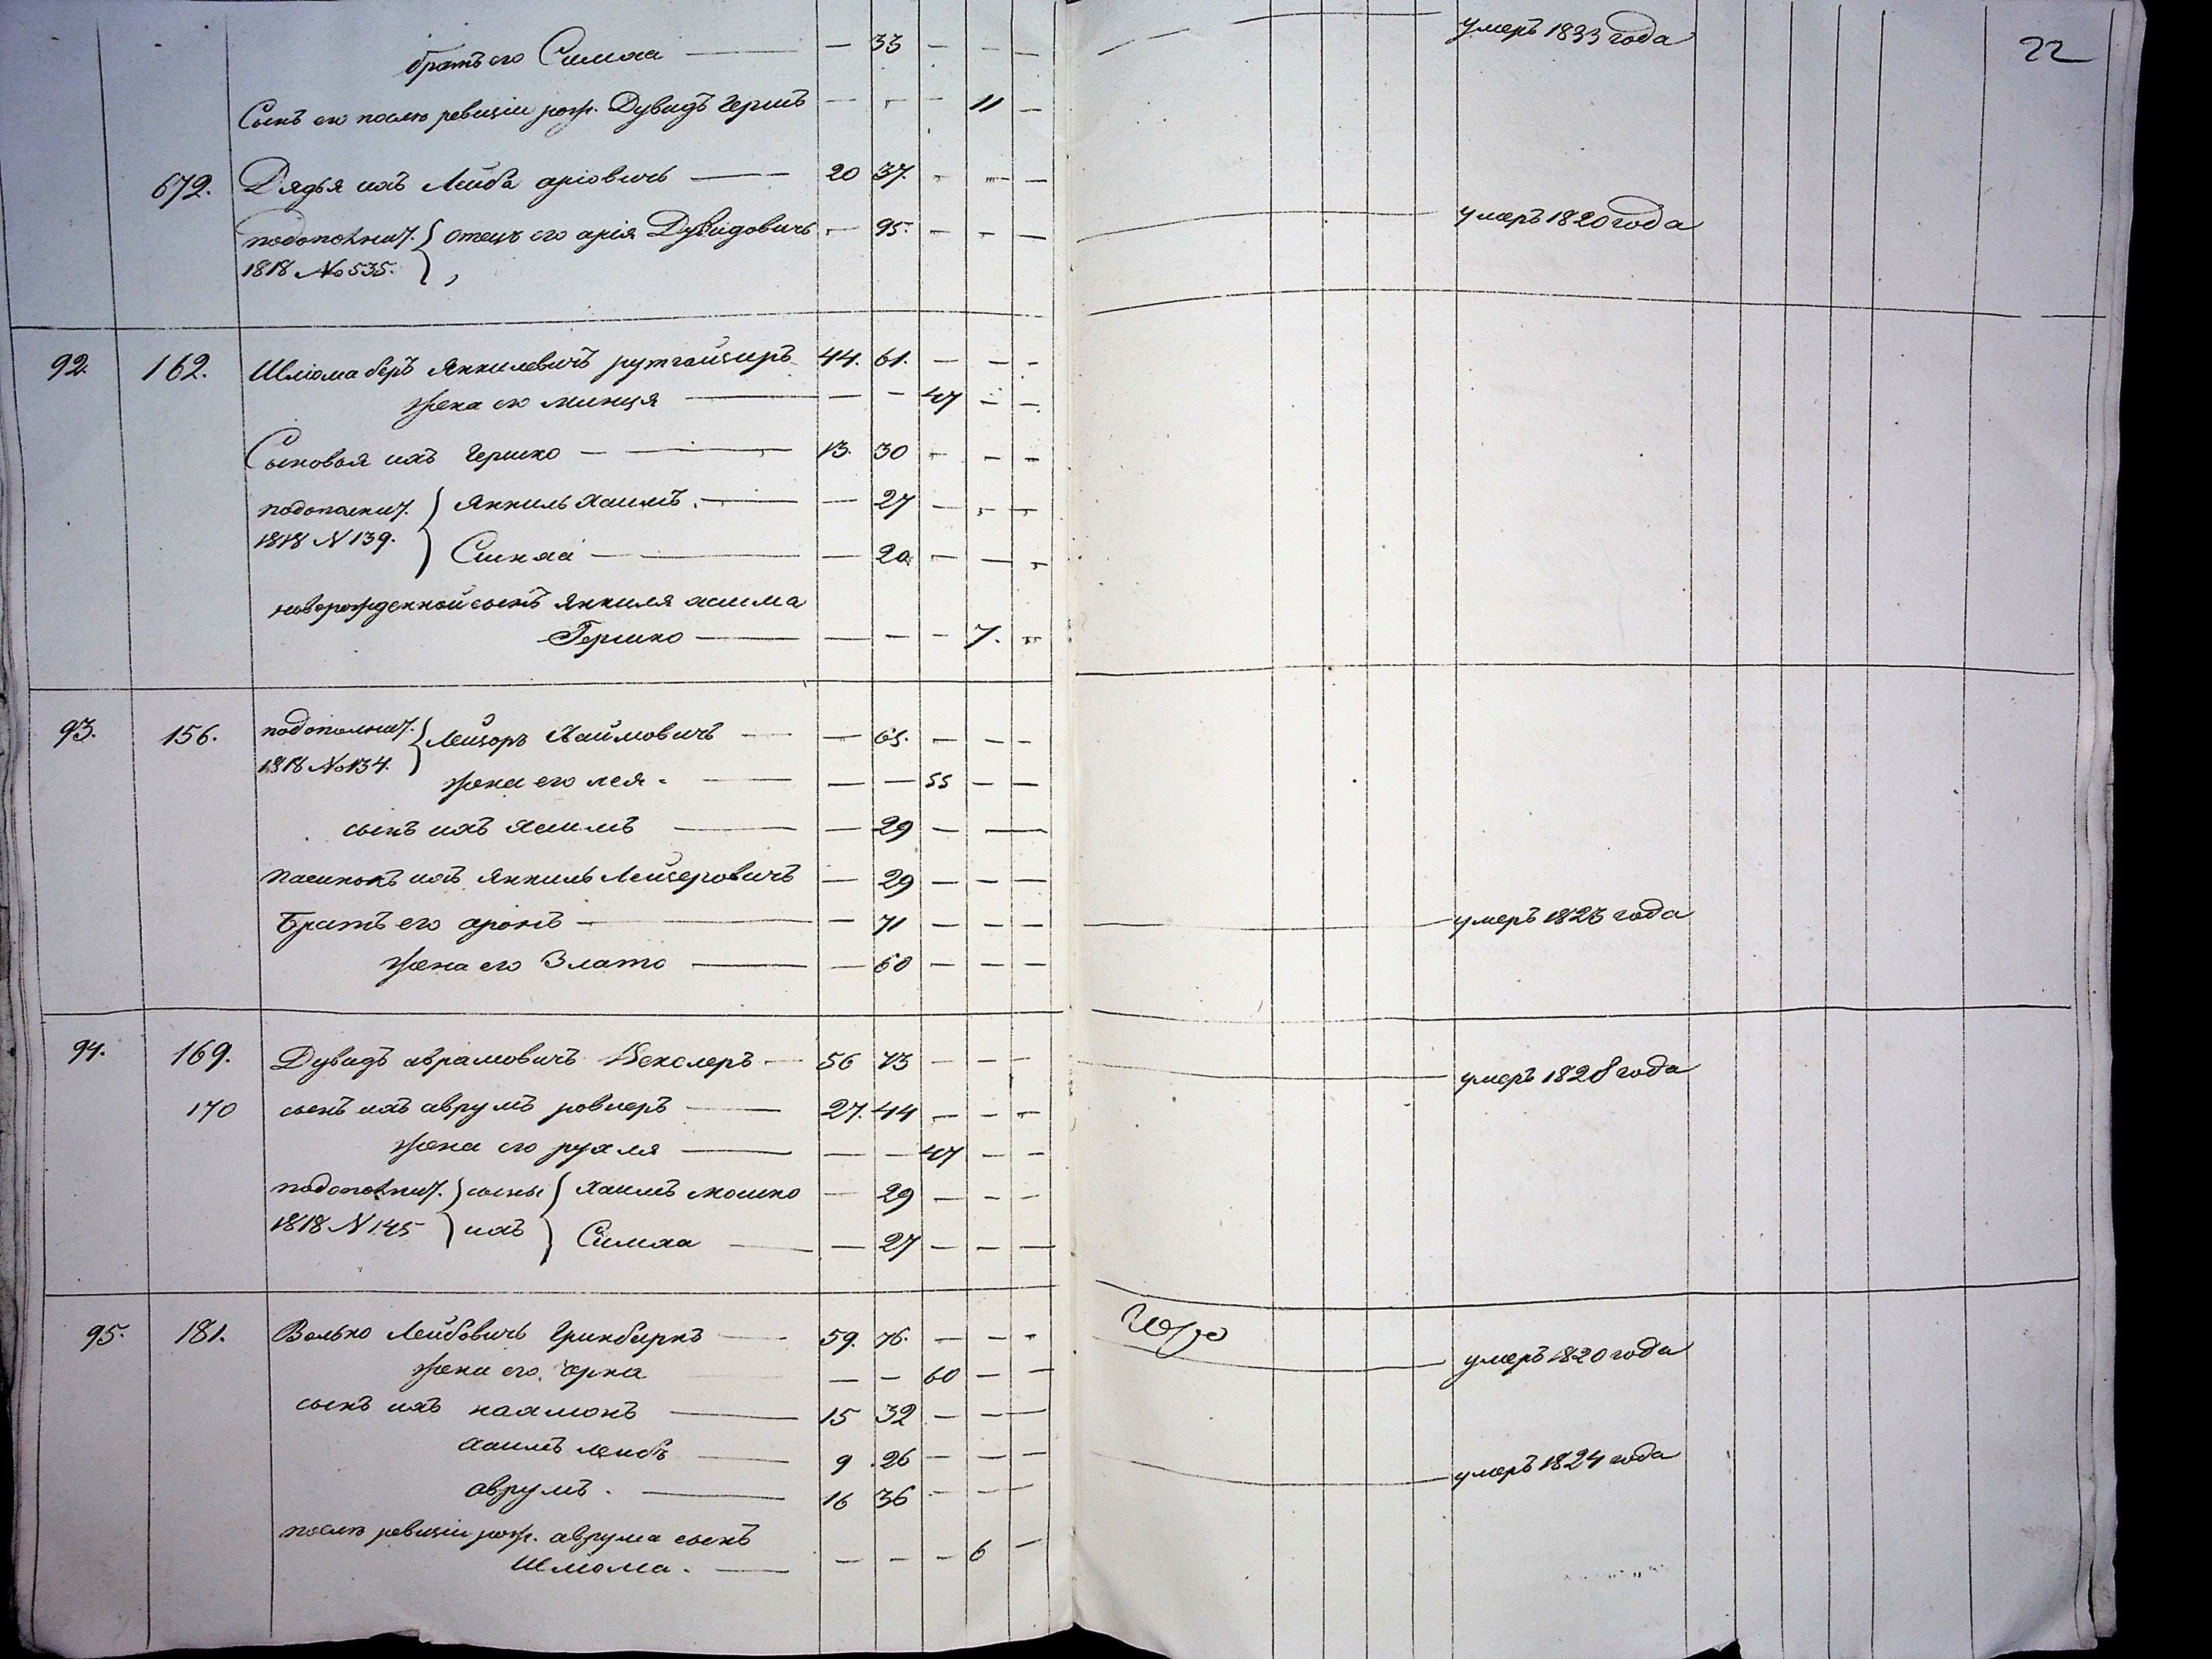 22
братъ его Симха — — 33 — — — умеръ 1833 года
Сынъ его послѣ ревизіи рож. Дувидъ Гершъ — — — 11 —
672. Дядья ихъ Лейба аріовичъ — 20 37. — — —
подополнит. { отецъ его арія Дувидовичъ — 95. — — — умеръ 1820 года
1818 № 535.
92. 162. Шліома беръ Янкилевичъ рутгайзиръ 44. 61. — — —
жена его минця — — — 47 — —
Сыновья ихъ Гершко — 13. 30 — — —
подополнит. } Янкиль хаимъ. — — 27 — — —
1818 N 139. } Симха — — 20 — — —
новорожденной сынъ Янкиля хаима
Гершко — — — — 7. —
93. 156. подополнит. { Лейзоръ Хаймовичъ — — 65. — — —
1818 № 134.
жена его лея. — — — 55 — —
сынъ ихъ хаимъ — — 29 — —
пасинокъ ихъ Янкиль Лейзеровичъ — 29 — — —
Братъ его аронъ — — 71 — — — умеръ 1823 года
жена его Злато — — 60 — — —
94. 169. Дувидъ абрамовичъ — 56 73 — — — умеръ 1828 года
170 сынъ ихъ аврумъ — 27. 44 — — —
жена его рухля — — — 47 — —
подополнит. } сыны { хаимъ мошко — 29 — — —
1818 N 145 } ихъ { Симха — — 27 — — —
95. 181. Волько Лейбовичъ Гринбиркъ — 59. 76. — — — умеръ 1820 года
жена его. Черна — — 60 — —
сынъ ихъ нахмонъ — 15 32 — — —
хаимъ лейбъ — 9 26 — — — умеръ 1824 года
аврумъ. — 16 36 — — —
послѣ ревизіи рож. аврума сынъ
Шліома. — — — — 6 —